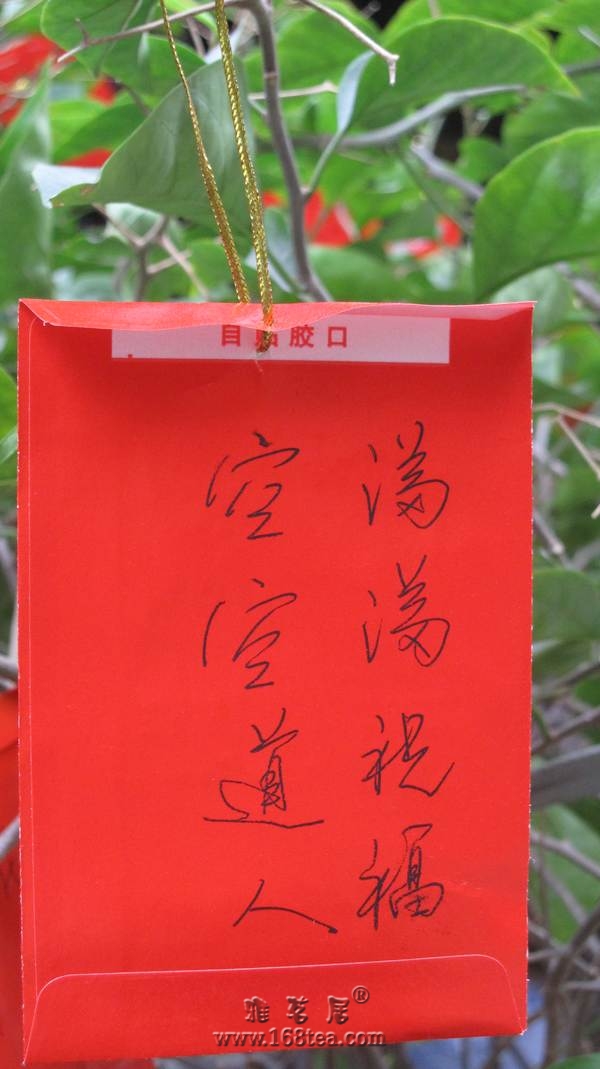 自贴胶口
满满祝福
空空道人
雅茗居®
www.168tea.com